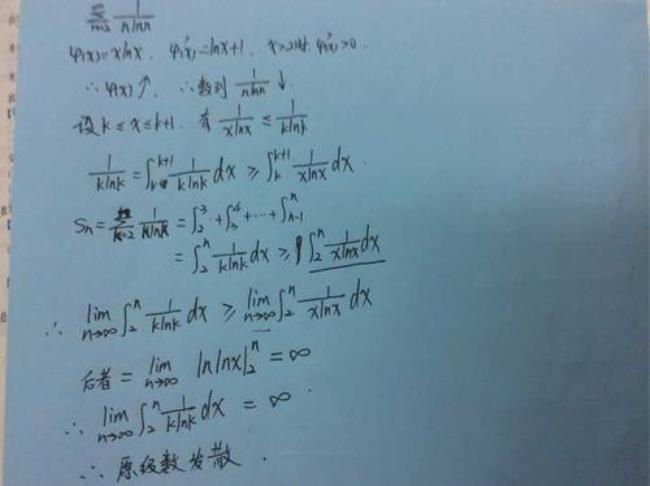 ∑ n=2 ∞ 1/(n ln n)
φ(x)=x ln x. φ'(x)=ln x+1. x>2时 φ'(x)>0.
∴ φ(x)↑, ∴数列 1/(n ln n) ↓
设 k≤x≤k+1. 有 1/(x ln x) ≤ 1/(k ln k)
1/(k ln k) = ∫_k^{k+1} 1/(k ln k) dx ≥ ∫_k^{k+1} 1/(x ln x) dx.
S_n = ∑_{k=2}^n 1/(k ln k) = ∫_2^3 + ∫_3^4 + ⋯ + ∫_{n-1}^n
= ∫_2^n 1/(k ln k) dx ≥ ∫_2^n 1/(x ln x) dx
∴ lim_{n→∞} ∫_2^n 1/(k ln k) dx ≥ lim_{n→∞} ∫_2^n 1/(x ln x) dx
后者 = lim_{n→∞} ln ln x |_2^n = ∞
∴ lim_{n→∞} ∫_2^n 1/(k ln k) dx = ∞.
∴ 原级数发散.